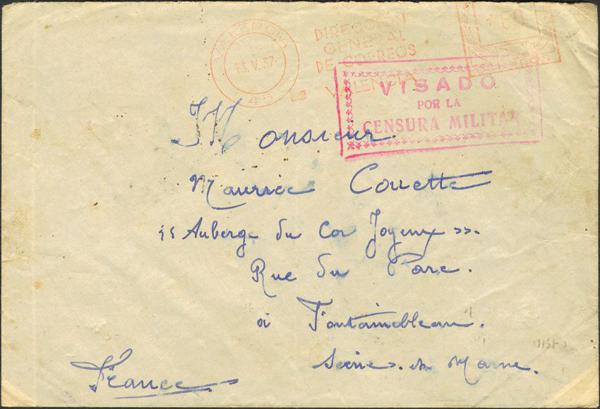 13.V.37
DIRECCION
GENERAL
DE CORREOS
VALENCIA
VISADO
POR LA
CENSURA MILITAR
Monsieur
Maurice Couette
"Auberge du Cor Joyeux".
Rue du Parc.
à Fontainebleau.
Seine. et Marne.
France